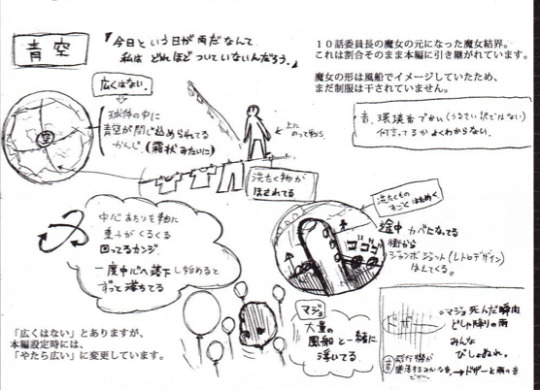 青空
『今日という日が雨だなんて
私は どれほど ついていないんだろう。』
10話委員長の魔女の元になった魔女結界。
これは割合そのまま本編に引き継がれています。
魔女の形は風船でイメージしていたため、
まだ制服は干されていません。
音、環境音でかい(うるさい訳ではない)
何言ってるか よくわからない。
広くはない。
球体の中に
青空が閉じ込められてる
かんじ。(霧状みたいに)
空
上に
のって歩く。
洗たく物が
ほされてる
洗たくもの
すごく はためく。
中心あたりを軸に
重力がくるくる
回ってるカンジ
一度中心へ落下し始めると
ずっと落ちてる
途中 カベになってる
街から
ジャンボジェット(レトロデザイン)
ゴゴゴ
マジョ
大量の
風船と一緒に
浮いてる
「広くはない」とありますが、
本編設定時には、
「やたら広い」に変更しています。
マジョ死んだ瞬間
どしゃ降りの雨
みんな
びしょぬれ。